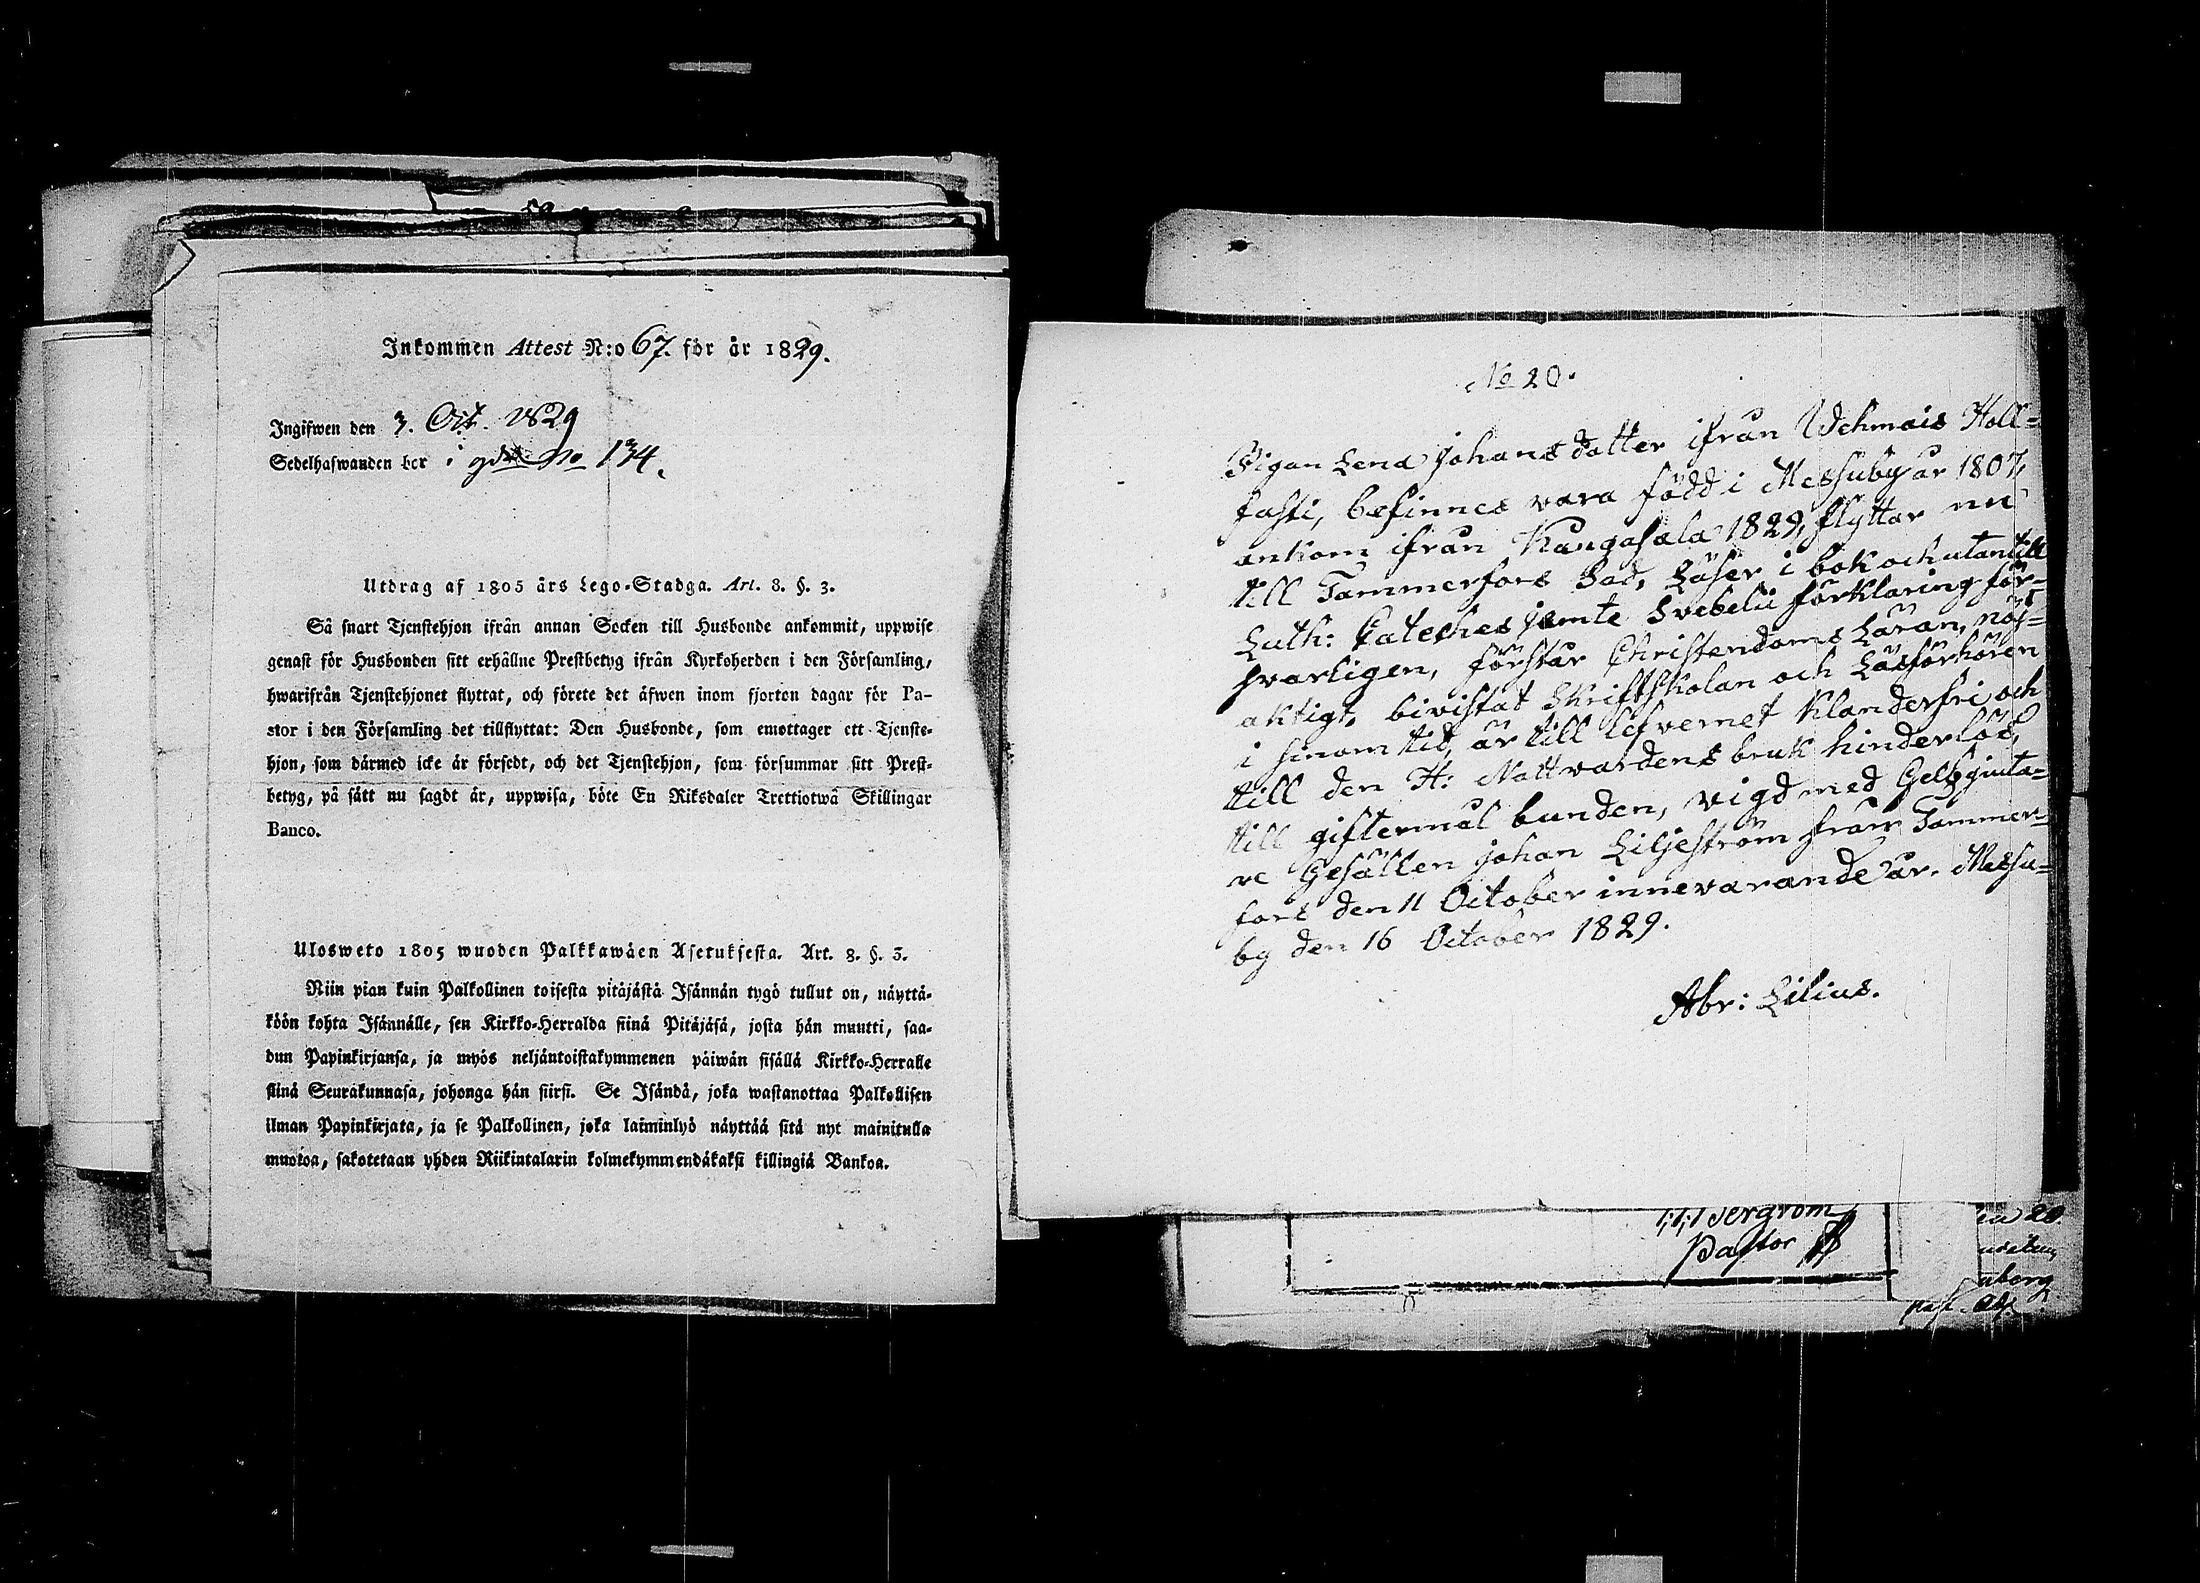 Inkommen Attest N:o 67. för år 1829.
Ingifwen den 3. Oct. 1829
Sedelhafwanden bor i gdn No 134.
Utdrag af 1805 års Lego-Stadga. Art. 8. §. 3.
Så snart Tjenstehjon ifrån annan Socken till Husbonde ankommit, uppwise
genast för Husbonden sitt erhållne Prestbetyg ifrån Kyrkoherden i den Församling,
hwarifrån Tjenstehjonet flyttat, och förete det äfwen inom fjorton dagar för Pa-
stor i den Församling det tillflyttat: Den Husbonde, som emottager ett Tjenste-
hjon, som därmed icke är försedt, och det Tjenstehjon, som försummar sitt Prest-
betyg, på sätt nu sagdt är, uppwisa, böte En Riksdaler Trettiotwå Skillingar
Banco.
Ulosweto 1805 wuoden Palkkawäen Asetuksesta. Art. 8. §. 3.
Niin pian kuin Palkollinen toisesta pitäjästä Isännän tygö tullut on, näyttä-
köön kohta Isännälle, sen Kirkko-Herralda siinä Pitäjäsä, josta hän muutti, saa-
dun Papinkirjansa, ja myös neljäntoistakymmenen päiwän sisällä Kirkko-Herralle
siinä Seurakunnasa, johonga hän siirsi. Se Isändä, joka wastanottaa Palkollisen
ilman Papinkirjata, ja se Palkollinen, joka laiminlyö näyttää sitä nyt mainitulla
muotoa, sakotetaan yhden Riikintalarin kolmekymmendäkaksi killingiä Bankoa.
No 20.
Pigan Lena Johansdotter ifrån Wehmais Holl-
fasti, befinnes vara född i Messuby år 1807,
ankom ifrån Kangasala 1829, flyttar nu
till Tammerfors Stad, Läser i bok och utantill
Luth: Cateches jemte Svebelii förklaring för-
svarligen, förstår Christendoms Läran, nöj-
aktigt, bivistat Skriftskolan och Läsförhören
i sinom tid, är till lefvernet klanderfri och
till den H: Nattvardens bruk hinderlös,
till giftermål bunden, vigd med Gelbgiuta-
re Gesällen Johan Liljeström från Tammer-
fors den 11 October innevarande år. Messu-
by den 16 October 1829.
Abr: Lilius.
Pastor
20